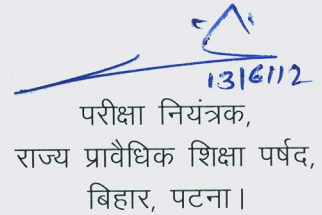 13/6/12
परीक्षा नियंत्रक,
राज्य प्रावैधिक शिक्षा पर्षद,
बिहार, पटना।